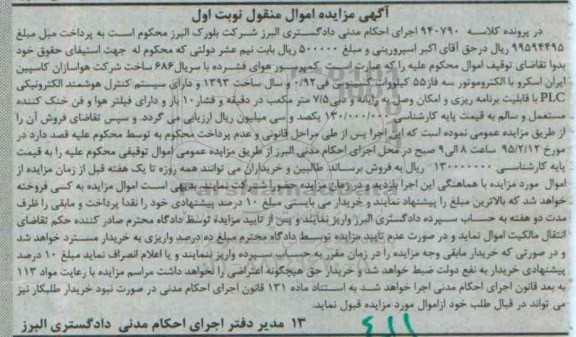 آگهی مزایده اموال منقول نوبت اول
در پرونده کلاسه ۹۴۰۷۹۰ اجرای احکام مدنی دادگستری البرز شرکت بلورک البرز محکوم است به پرداخت مبلغ
۹۹۵۹۴۴۹۵ ریال درحق آقای اکبر اسپروربنی و مبلغ ۵۰۰۰۰۰ ریال بابت نیم عشر دولتی که محکوم له جهت استیفای حقوق خود
بدوا تقاضای توقیف اموال محکوم علیه را که عبارت است کمپرسور هوای فشرده با سریال ۶۸۶ ساخت شرکت هواسازان کاسپین
ایران اسکرو با الکتروموتور سه فاز ۵۵ کیلووات کسینوس فی ۰/۹۲ و سال ساخت ۱۳۹۳ و دارای سیستم کنترل هوشمند الکترونیکی
PLC با قابلیت برنامه ریزی و امکان وصل به رایانه و دبی ۷/۵ متر مکعب در دقیقه و فشار ۱۰ بار و دارای فیلتر هوا و فن خنک کننده
مستعمل و سالم به قیمت پایه کارشناسی ۱۳۰/۰۰۰/۰۰۰ یکصد و سی میلیون ریال ارزیابی می گردد. و سپس تقاضای فروش آن را
از طریق مزایده عمومی نموده است که این اجرا پس از طی مراحل قانونی و عدم پرداخت محکوم به توسط محکوم علیه قصد دارد در
مورخ ۹۵/۲/۱۲ ساعت ۸ الی ۹ صبح در محل اجرای احکام مدنی البرز از طریق مزایده عمومی اموال توقیفی محکوم علیه را به قیمت
پایه کارشناسی ۱۳۰۰۰۰۰۰۰ ریال به فروش برساند. طالبین و خریداران می توانند همه روزه تا یک هفته قبل از زمان مزایده از
اموال مورد مزایده با هماهنگی این اجرا بازدید و در زمان مزایده حضور و شرکت نمایند بدیهی است اموال مزایده به کسی فروخته
خواهد شد که بالاترین مبلغ را پیشنهاد نمایند و خریدار می بایستی مبلغ ۱۰ درصد پیشنهادی خود را نقدا پرداخت و مابقی را ظرف
مدت دو هفته به حساب سپرده دادگستری البرز واریز نمایند و پس از تایید مزایده توسط دادگاه محترم صادر کننده حکم تقاضای
انتقال مالکیت اموال نماید و در صورت عدم تایید مزایده توسط دادگاه محترم مبلغ ده درصد واریزی به خریدار مسترد خواهد شد
و در صورتی که خریدار مابقی وجه مزایده را در زمان مقرر به حساب سپرده واریز ننمایند و یا اعلام انصراف نماید مبلغ ۱۰ درصد
پیشنهادی خریدار به نفع دولت ضبط خواهد شد و خریدار حق هیچگونه اعتراضی را نخواهد داشت مراسم مزایده با رعایت مواد ۱۱۳
به بعد قانون اجرای احکام مدنی اجرا خواهد شد به استناد ماده ۱۳۱ قانون اجرای احکام مدنی در صورت نبود خریدار طلبکار نیز
می تواند در قبال طلب خود ازاموال مورد مزایده قبول نماید.
۱۳ مدیر دفتر اجرای احکام مدنی دادگستری البرز